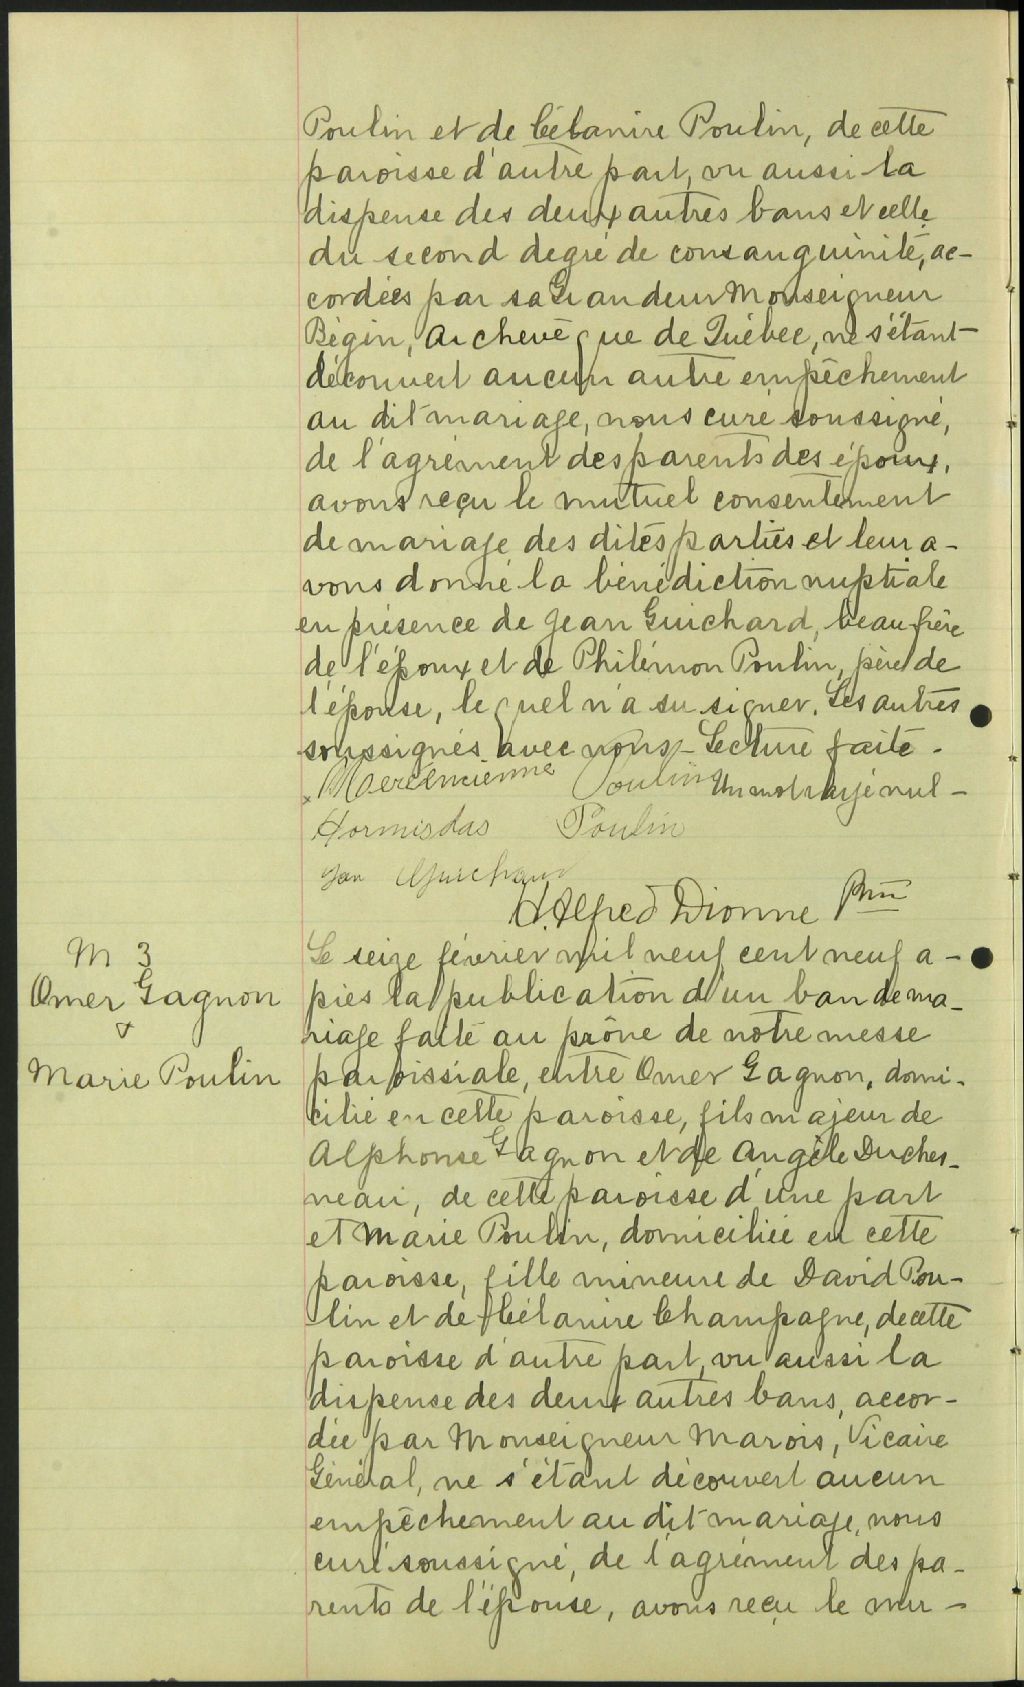 Poulin et de Célanire Poulin, de cette
paroisse d'autre part, vu aussi la
dispense des deux autres bans et celle
du second degré de consanguinité, ac-
cordées par sa Grandeur Monseigneur
Bégin, Archevêque de Québec, ne s'étant
découvert aucun autre empêchement
au dit mariage, nous curé soussigné,
de l'agrément des parents des époux,
avons reçu le mutuel consentement
de mariage des dites parties et leur a-
vons donné la bénédiction nuptiale
en présence de Jean Guichard, beau frère
de l'époux et de Philémon Poulin, père de
l'épouse, lequel n'a su signer. Les autres
soussignés avec nous - Lecture faite -
Poulin Un mot rayé nul -
Hormisdas Poulin
H. Alfred Dionne Ptre
M 3
Omer Gagnon
&
Marie Poulin
Le seize février mil neuf cent neuf a-
près la publication d'un ban de ma-
riage faite au prône de notre messe
paroissiale, entre Omer Gagnon, domi-
cilié en cette paroisse, fils majeur de
Alphonse Gagnon et de Angèle Duches-
neau, de cette paroisse d'une part
et Marie Poulin, domiciliée en cette
paroisse, fille mineure de David Pou-
lin et de Célanire Champagne, de cette
paroisse d'autre part, vu aussi la
dispense des deux autres bans, accor-
dée par Monseigneur Marois, Vicaire
Général, ne s'étant découvert aucun
empêchement au dit mariage, nous
curé soussigné, de l'agrément des pa-
rents de l'épouse, avons reçu le mu-